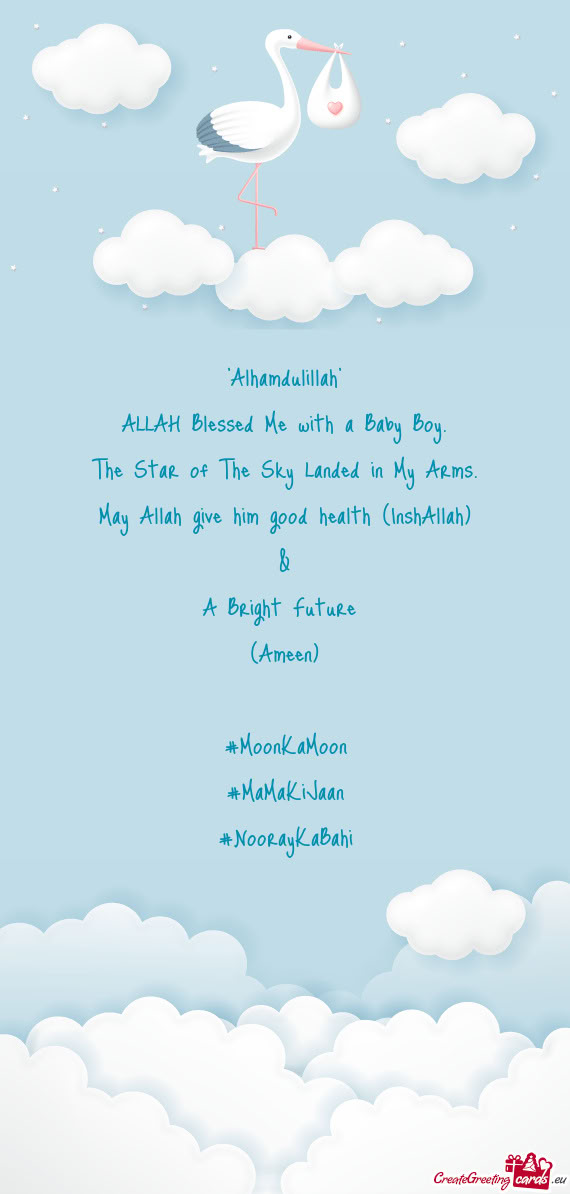 "Alhamdulillah"
ALLAH Blessed Me with a Baby Boy.
The Star of The Sky Landed in My Arms.
May Allah give him good health (InshAllah)
&
A Bright Future
(Ameen)
#MoonKaMoon
#MaMaKiJaan
#NoorayKaBahi
CreateGreeting cards .eu